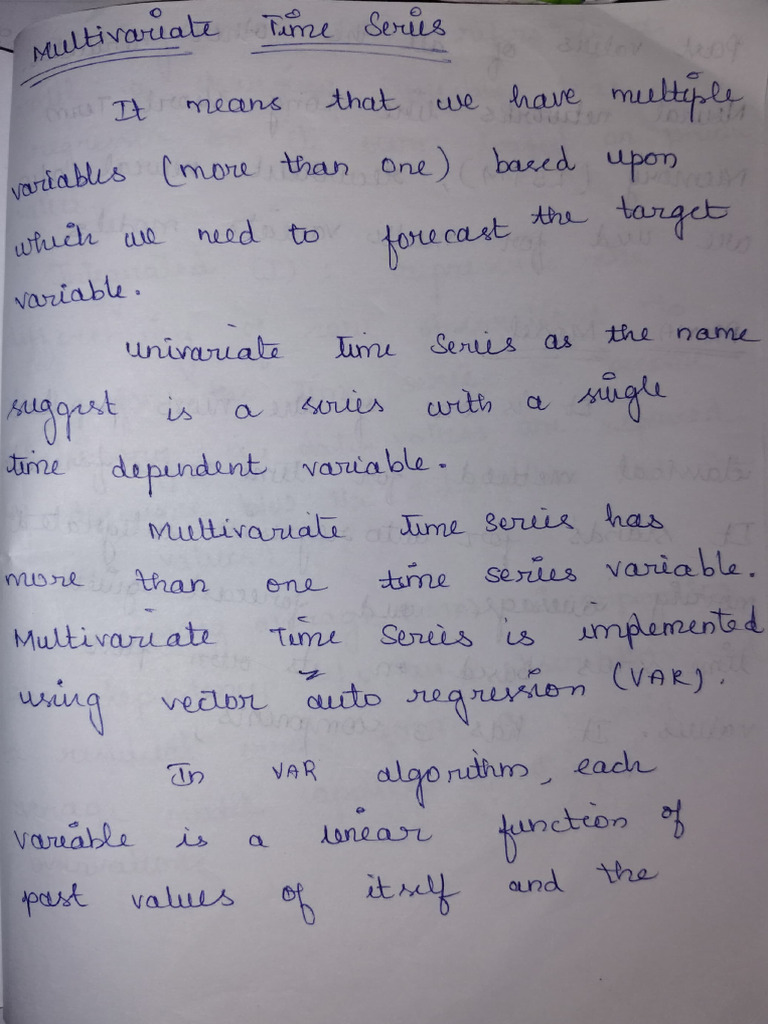 Multivariate Time Series
It means that we have multiple
variables (more than one) based upon
which we need to forecast the target
variable.
Univariate Time Series as the name
suggest is a series with a single
time dependent variable.
Multivariate Time series has
more than one time series variable.
Multivariate Time Series is implemented
using vector auto regression (VAR).
In VAR algorithm, each
variable is a linear function of
past values of itself and the